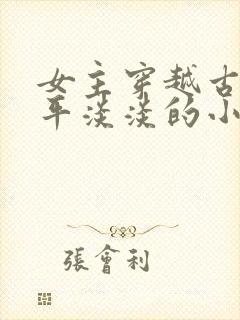 女主穿越古
平淡淡的小
張會利